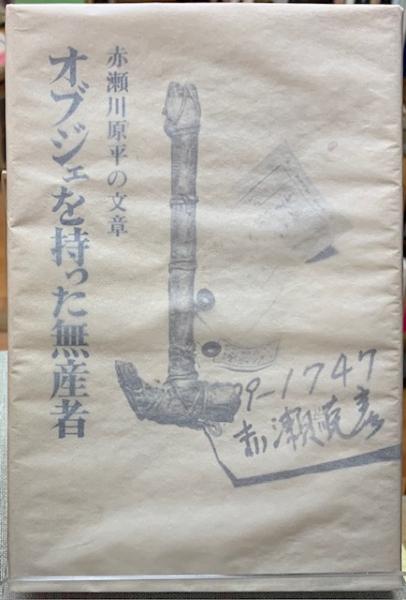 赤瀬川原平の文章
オブジェを持った無産者
9-1747
赤瀬克彦